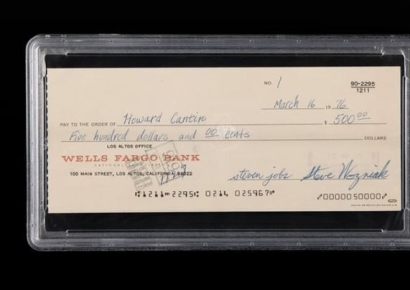 NO. 1
90-2295
1211
March 16 1976
PAY TO THE ORDER OF Howard Cantin $ 500.00
Five hundred dollars and 00 cents DOLLARS
LOS ALTOS OFFICE
WELLS FARGO BANK
100 MAIN STREET, LOS ALTOS, CALIFORNIA 94022
steven jobs Steve Wozniak
⑆1211⑉2295⑆ 0214 025967⑈ ⑈0000050000⑈